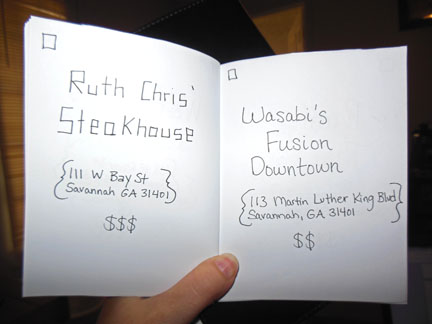 Ruth Chris'
Steakhouse
{111 W Bay St
Savannah GA 31401}
$$$
Wasabi's
Fusion
Downtown
{113 Martin Luther King Blvd
Savannah, GA 31401}
$$